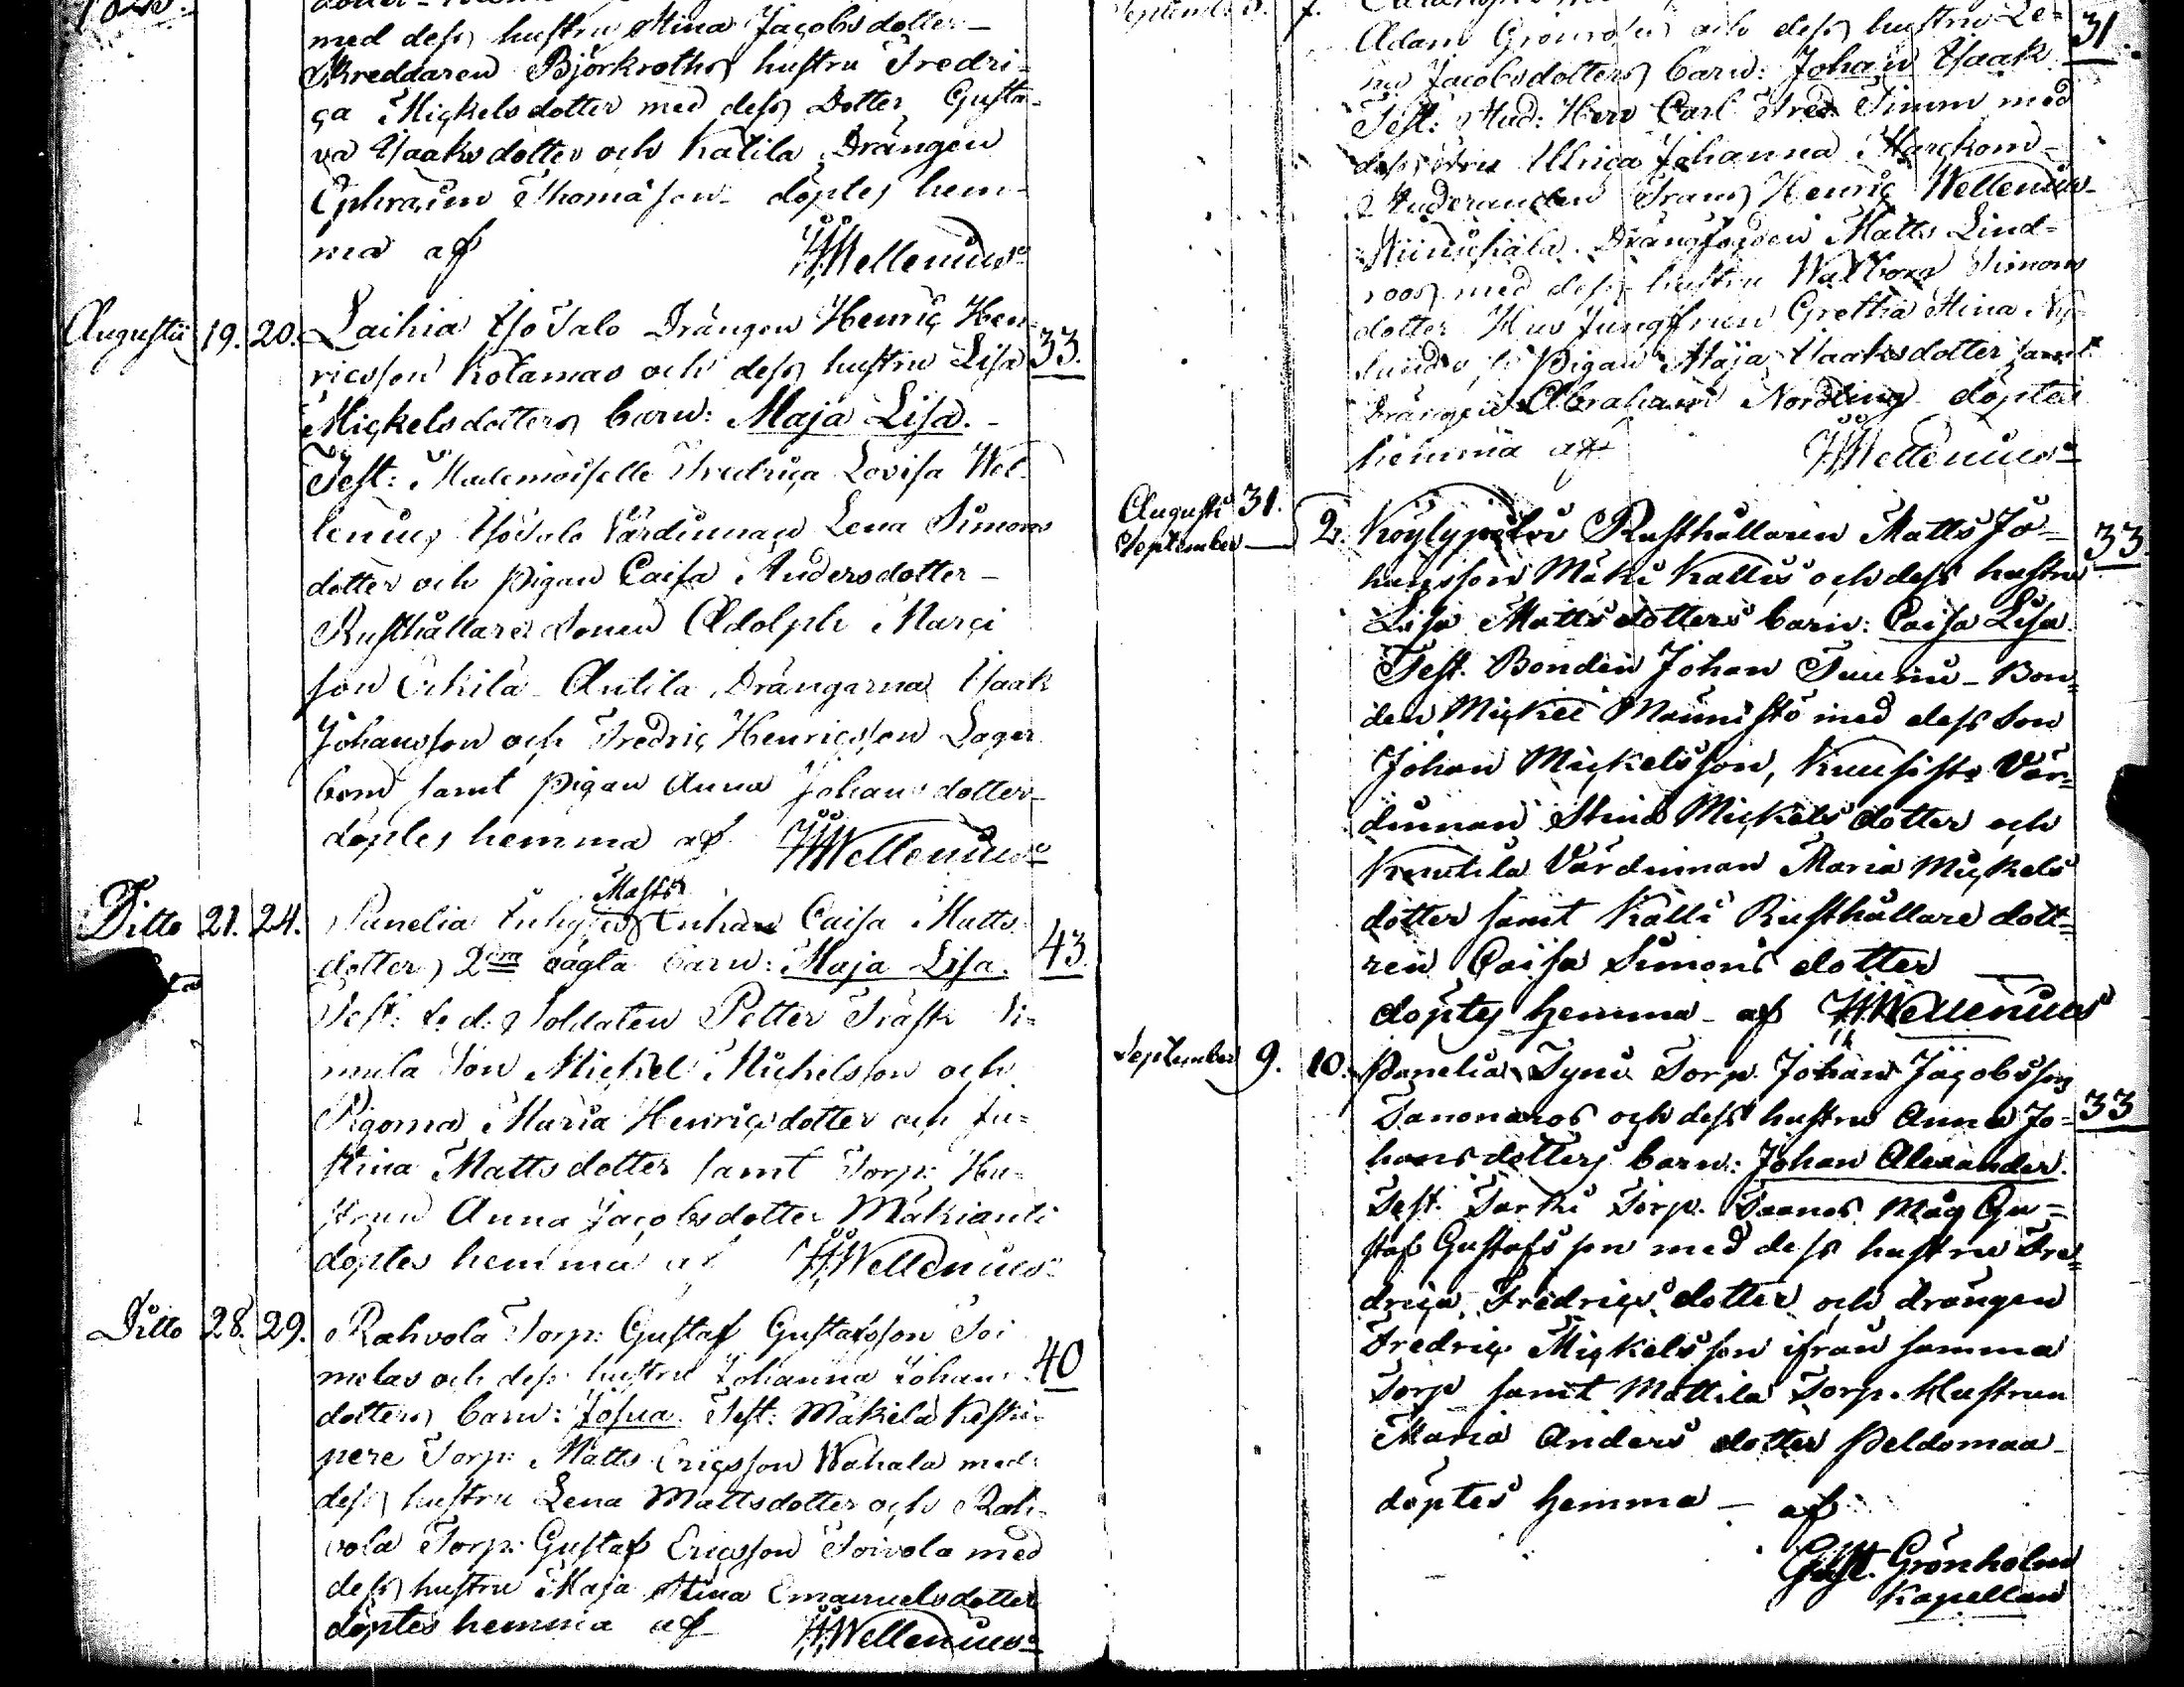 med dess hustru Stina Jacobsdotter –
Skreddaren Björkroths hustru Fredri-
ca Mickelsdotter med dess Dotter Gusta-
va Isaaksdotter och Katila Drängen
Ephraim Thomasson – döptes hem-
ma af HWellenius
Augustii 19. 20. Laihia Iso Talo Drängen Henric Hen-
ricsson Kotamas och dess hustru Lisa 33.
Mickelsdotters barn: Maja Lisa. –
Test: Mademoiselle Fredrica Lovisa Wel-
lenius Iso Talo Värdinnan Lena Simons
dotter och Pigan Caisa Andersdotter –
Rusthållare Sonen Adolph Marci
son Erkilä Antila Drängarna Isaak
Johansson och Fredric Henricsson Lager
bom samt Pigan Anna Johansdotter –
döptes hemma af HWellenius
Matts
Ditto 21. 24. Panelia Enkan Caisa Matts
dotters 2dra oägta barn: Maja Lisa. 43.
Test: Soldaten Petter Träsk
mula Son Michel Michelsson och
Pigorna Maria Henricsdotter och Ju-
stina Mattsdotter samt Torp: Hu-
strun Anna Jacobsdotter Mäkianti
döptes hemma af HWellenius
Ditto 28. 29. Rahvola Torp: Gustaf Gustafsson Toi
melas och dess hustru Johanna Johans 40
dotters barn: Josua. Test: Mäkilä Keski-
pere Torp: Matts Ericsson Wahala med
dess hustru Lena Mattsdotter och Rah-
vola Torp: Gustaf Ericsson Toivola med
dess hustru Maja Stina Emanuelsdotter
döptes hemma af HWellenius
September 7.
Adam Grönroos och dess hustru Le- 31.
na Jacobsdotters barn: Johan Isaak
Test: Stud: Herr Carl Fred Timm med
dess Fru Ulrica Johanna Marckom –
Studeranden Frans Henric Wellenius –
Drängfogden Matts Lind-
roos med dess hustru Walborg Simons
dotter Hus Jungfrun Gretha Stina Ny-
lund Pigan Maja Isaaksdotter samt
Drängen Abraham Nordling döptes
hemma af HWellenius
Augusti 31.
September – 2. Köylypolvi Rusthållaren Matts Jo-
hansson Mäki Kallis och dess hustru 33.
Lisa Mattsdotters barn: Caisa Lisa.
Test. Bonden Johan Tuuriu – Bon-
den Mickel Maunisto med dess Son
Johan Mickelsson, Kuusisto Vär-
dinnan Stina Mickelsdotter och
Knutila Värdinnan Maria Mickels
dotter samt Källi Rusthållare dott-
ren Caisa Simons dotter –
döptes hemma – af HWellenius
September 9. 10. Panelia Tyni Torp. Johan Jacobsson
Tanonaros och dess hustru Anna Jo- 33
hansdotters barn: Johan Alexander.
Test. Turki Torp. Taanos Måg Gu-
staf Gustafsson med dess hustru Fre-
drica Fredrics dotter och drängen
Fredric Mickelsson ifrån samma
Torp samt Mattila Torp. Hustrun
Maria Anders dotter Peldomaa –
döptes hemma – af
Gust. Grönholm
Kapellan